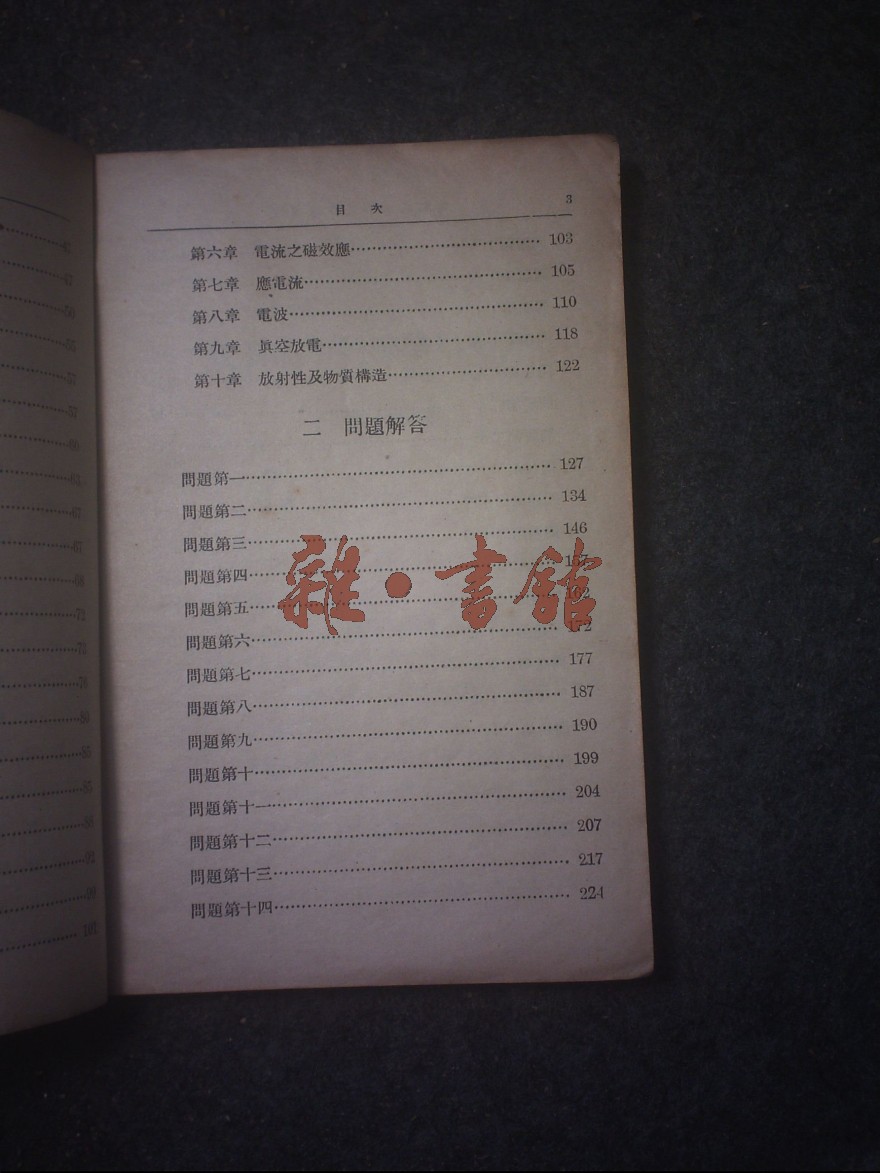 目 次 3
第六章 電流之磁效應 103
第七章 應電流 105
第八章 電波 110
第九章 眞空放電 118
第十章 放射性及物質構造 122
二 問題解答
問題第一 127
問題第二 134
問題第三 146
問題第四
問題第五
問題第六
問題第七 177
問題第八 187
問題第九 190
問題第十 199
問題第十一 204
問題第十二 207
問題第十三 217
問題第十四 224
雜·書館